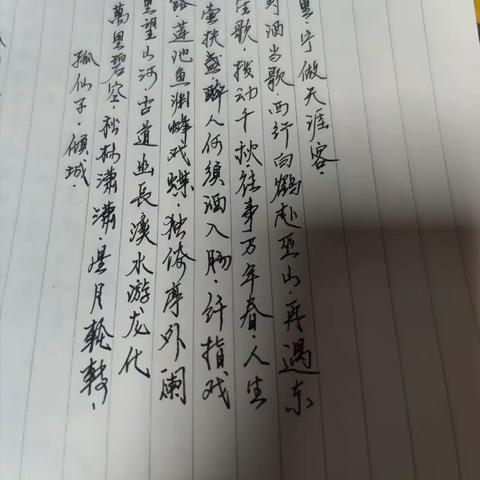 孤仙子·倾城·
萬里碧空·秋林瀟瀟·星月輓轉·
里望山河·古道幽長溪水游龙化
路·莲池鱼渊蜂戏蝶·独倚亭外阑
壶扶盏醉人何须酒入肠·纤指戏
生歌·拨动千秋·往事万年春·人生
对酒当歌·西行白鹤赴巫山·再遇东
里·宁做天涯客·